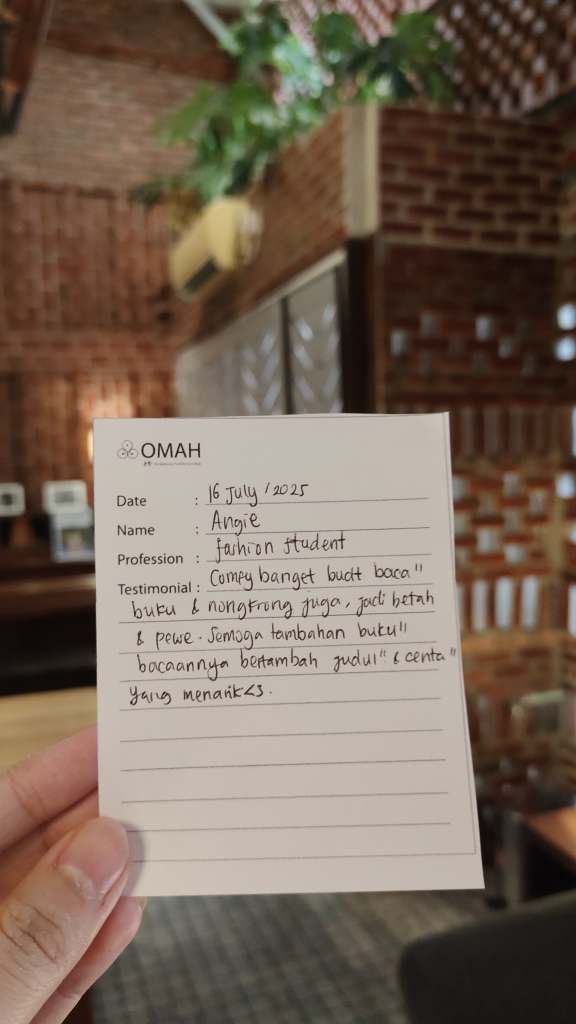 OMAH
Date : 16 July / 2025
Name : Angie
Profession : fashion student
Testimonial : Comfy banget buat baca"
buku & nongkrong juga, jadi betah
& pewe. Semoga tambahan buku"
bacaannya bertambah judul" & cerita"
yang menarik<3.